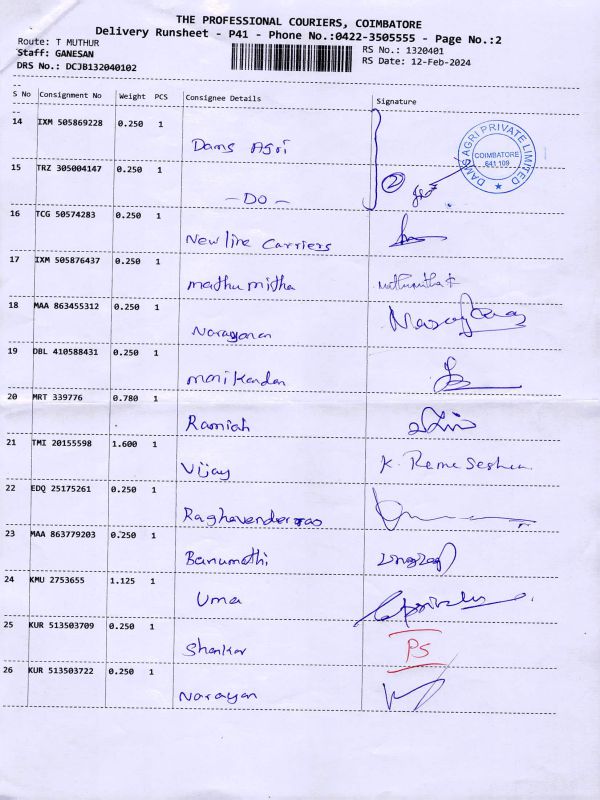 THE PROFESSIONAL COURIERS, COIMBATORE
Delivery Runsheet - P41 - Phone No.:0422-3505555 - Page No.:2
Route: T MUTHUR
RS No.: 1320401
Staff: GANESAN
RS Date: 12-Feb-2024
DRS No.: DCJB132040102
S No Consignment No Weight PCS Consignee Details Signature
14 IXM 505869228 0.250 1 Dams Agri
DAMS AGRI PRIVATE LIMITED
COIMBATORE
641 109
15 TRZ 305004147 0.250 1 - DO - 2
16 TCG 50574283 0.250 1 New line Carriers
17 IXM 505876437 0.250 1 mathumitha
18 MAA 863455312 0.250 1 Narayanan
19 DBL 410588431 0.250 1 manikandan
20 MRT 339776 0.780 1 Ramiah
21 TMI 20155598 1.600 1 Vijay K. Rama Seshan
22 EDQ 25175261 0.250 1 Raghavenderrao
23 MAA 863779203 0.250 1 Banumathi
24 KMU 2753655 1.125 1 Uma
25 KUR 513503709 0.250 1 Shankar PS
26 KUR 513503722 0.250 1 Narayan